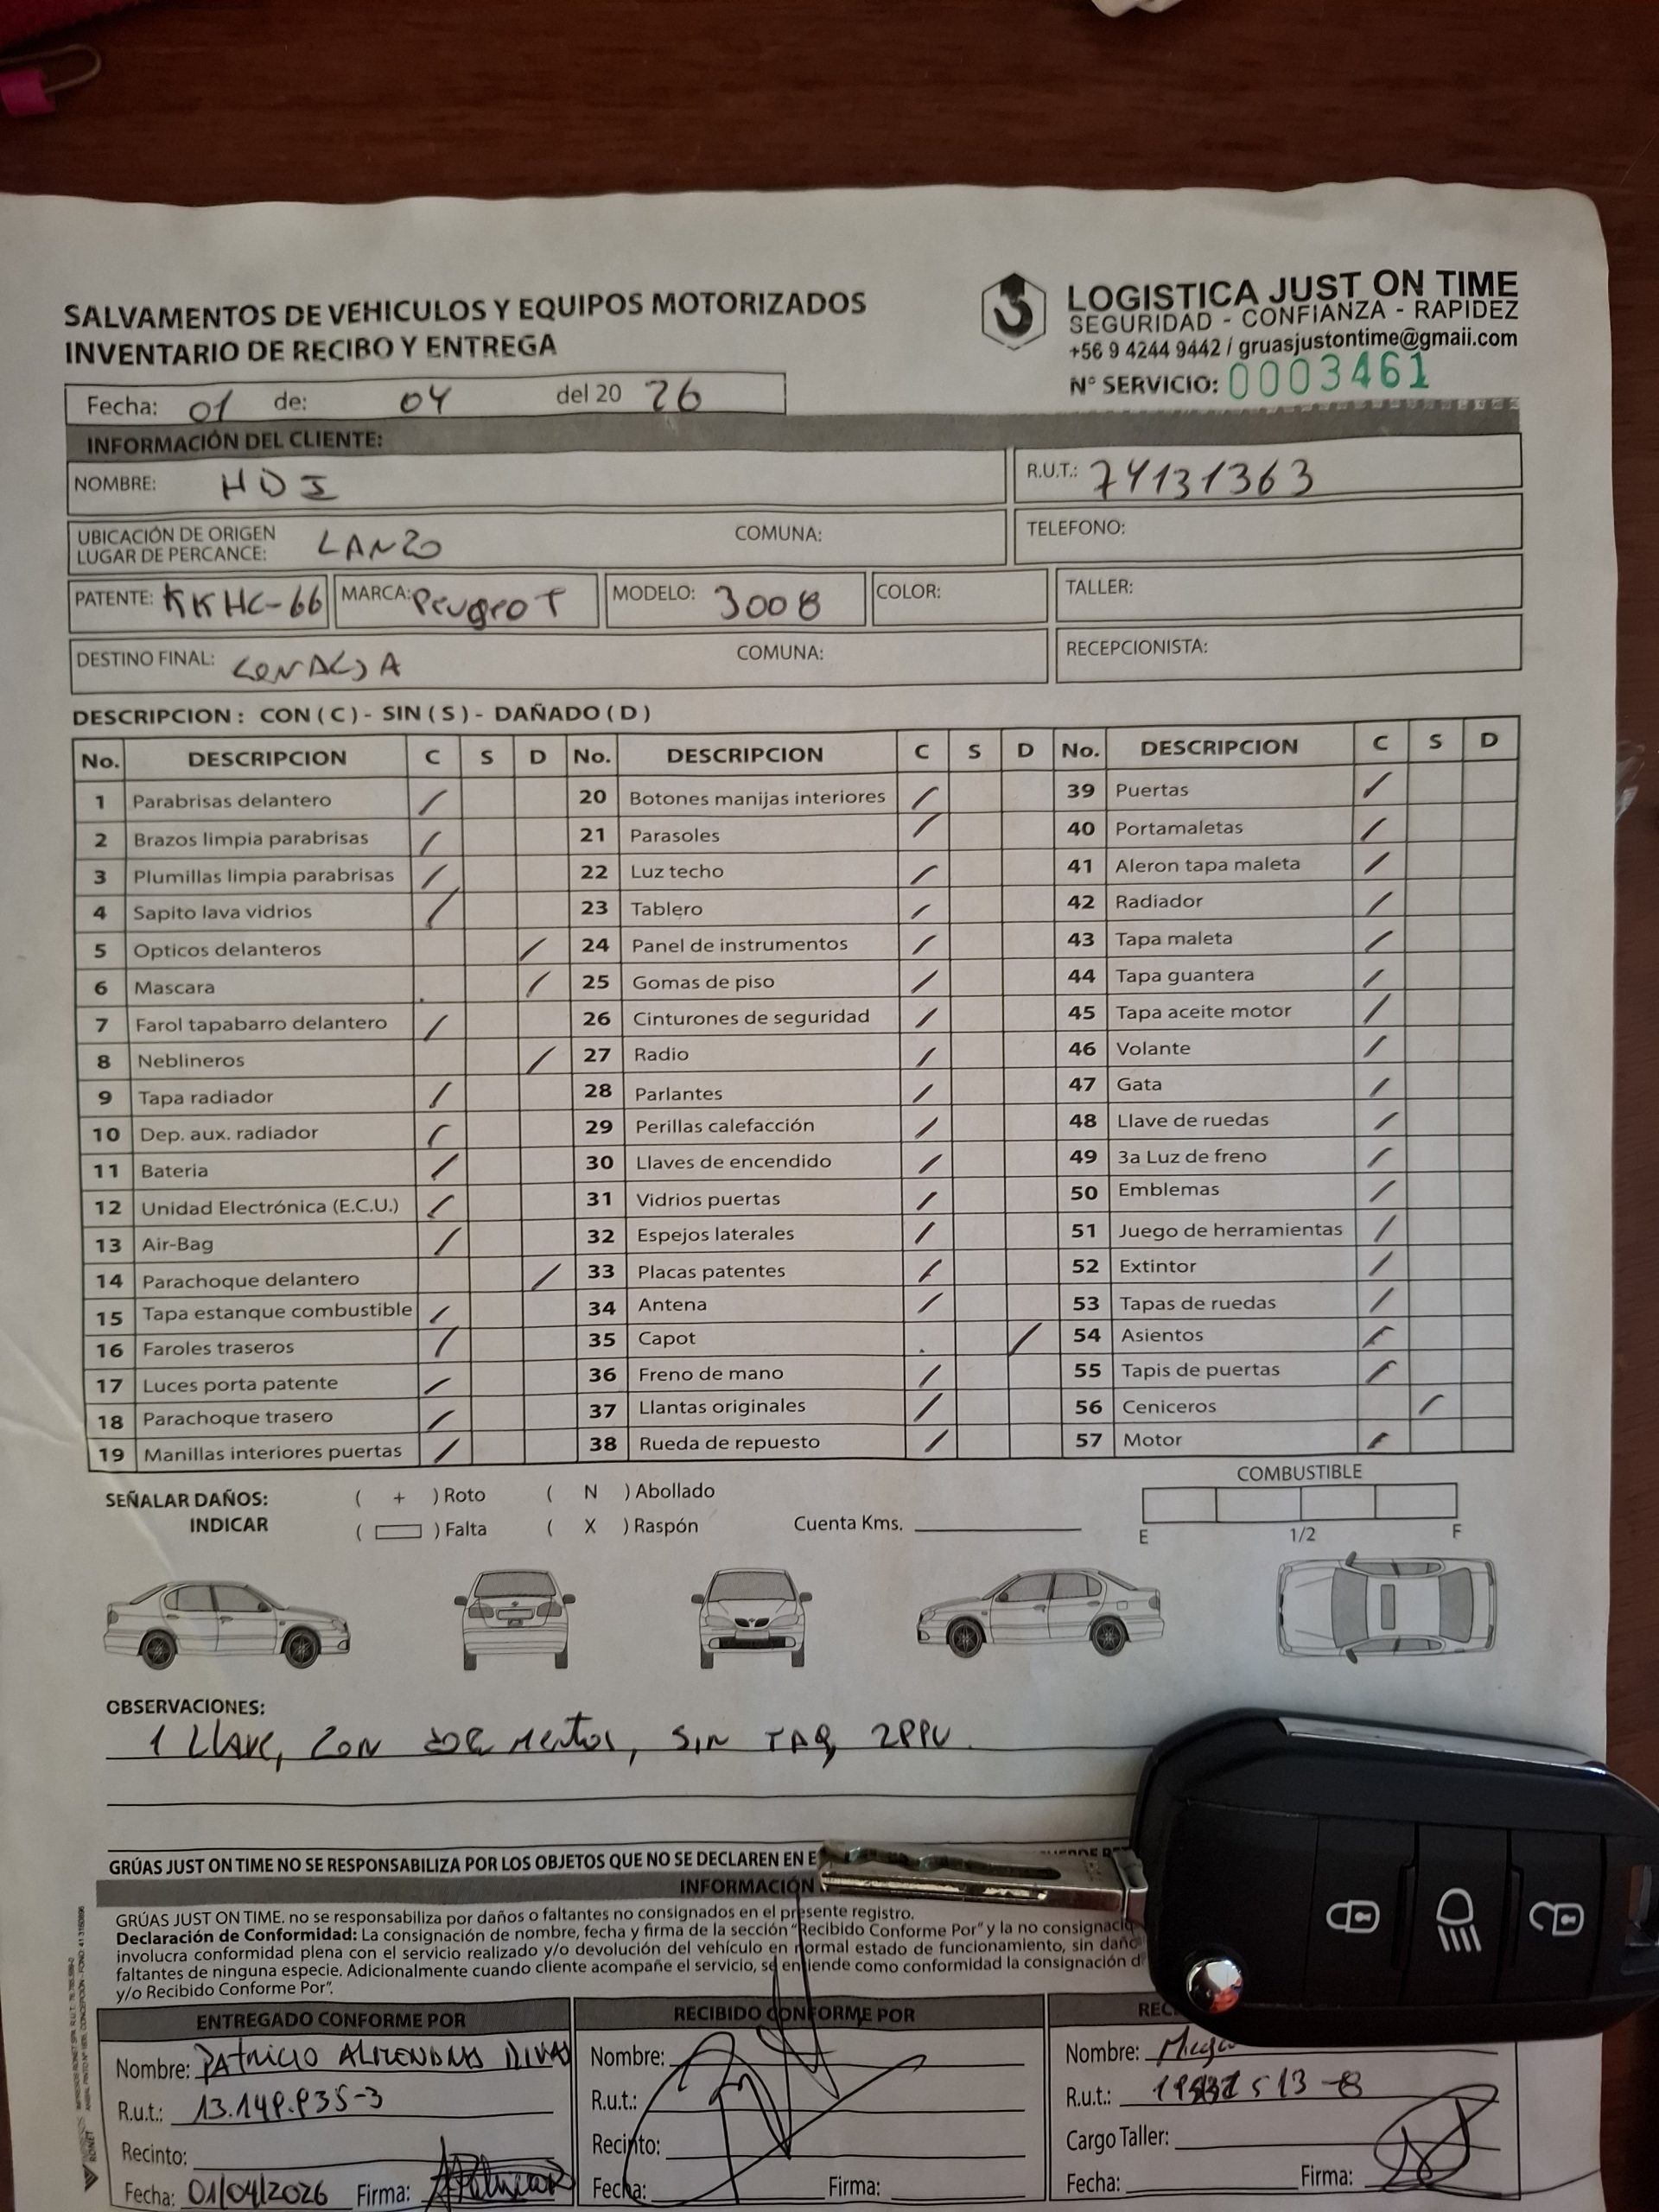 SALVAMENTOS DE VEHICULOS Y EQUIPOS MOTORIZADOS
INVENTARIO DE RECIBO Y ENTREGA
LOGISTICA JUST ON TIME
SEGURIDAD - CONFIANZA - RAPIDEZ
+56 9 4244 9442 / gruasjustontime@gmaii.com
N° SERVICIO: 0003461
Fecha: 01 de: 04 del 20 26
INFORMACIÓN DEL CLIENTE:
NOMBRE: HDI R.U.T.: 74131363
UBICACIÓN DE ORIGEN
LUGAR DE PERCANCE: LANZO COMUNA: TELEFONO:
PATENTE: KKHC-66 MARCA: PEugeoT MODELO: 3008 COLOR: TALLER:
DESTINO FINAL: COMUNA: RECEPCIONISTA:
DESCRIPCION : CON ( C ) - SIN ( S ) - DAÑADO ( D )
No. DESCRIPCION C S D No. DESCRIPCION C S D No. DESCRIPCION C S D
1 Parabrisas delantero / 20 Botones manijas interiores / 39 Puertas /
2 Brazos limpia parabrisas / 21 Parasoles / 40 Portamaletas /
3 Plumillas limpia parabrisas / 22 Luz techo / 41 Aleron tapa maleta /
4 Sapito lava vidrios / 23 Tablero / 42 Radiador /
5 Opticos delanteros / 24 Panel de instrumentos / 43 Tapa maleta /
6 Mascara / 25 Gomas de piso / 44 Tapa guantera /
7 Farol tapabarro delantero / 26 Cinturones de seguridad / 45 Tapa aceite motor /
8 Neblineros / 27 Radio / 46 Volante /
9 Tapa radiador / 28 Parlantes / 47 Gata /
10 Dep. aux. radiador / 29 Perillas calefacción / 48 Llave de ruedas /
11 Bateria / 30 Llaves de encendido / 49 3a Luz de freno /
12 Unidad Electrónica (E.C.U.) / 31 Vidrios puertas / 50 Emblemas /
13 Air-Bag / 32 Espejos laterales / 51 Juego de herramientas /
14 Parachoque delantero / 33 Placas patentes / 52 Extintor /
15 Tapa estanque combustible / 34 Antena / 53 Tapas de ruedas /
16 Faroles traseros / 35 Capot / 54 Asientos /
17 Luces porta patente / 36 Freno de mano / 55 Tapis de puertas /
18 Parachoque trasero / 37 Llantas originales / 56 Ceniceros /
19 Manillas interiores puertas / 38 Rueda de repuesto / 57 Motor /
SEÑALAR DAÑOS: ( + ) Roto ( N ) Abollado COMBUSTIBLE
INDICAR ( ) Falta ( X ) Raspón Cuenta Kms. E 1/2 F
OBSERVACIONES:
1 LLAVE, CON SIN TAG, 2PPU
GRÚAS JUST ON TIME NO SE RESPONSABILIZA POR LOS OBJETOS QUE NO SE DECLAREN EN E
INFORMACIÓN
GRÚAS JUST ON TIME. no se responsabiliza por daños o faltantes no consignados en el presente registro.
Declaración de Conformidad: La consignación de nombre, fecha y firma de la sección "Recibido Conforme Por" y la no consignació
involucra conformidad plena con el servicio realizado y/o devolución del vehículo en normal estado de funcionamiento, sin daño
faltantes de ninguna especie. Adicionalmente cuando cliente acompañe el servicio, se entiende como conformidad la consignación d
y/o Recibido Conforme Por".
ENTREGADO CONFORME POR
Nombre: PATRICIO
R.u.t.: 13.149.935-3
Recinto:
Fecha: 01/04/2026 Firma:
RECIBIDO CONFORME POR
Nombre:
R.u.t.:
Recinto:
Fecha: Firma:
REC
Nombre:
R.u.t.:
Cargo Taller:
Fecha: Firma: